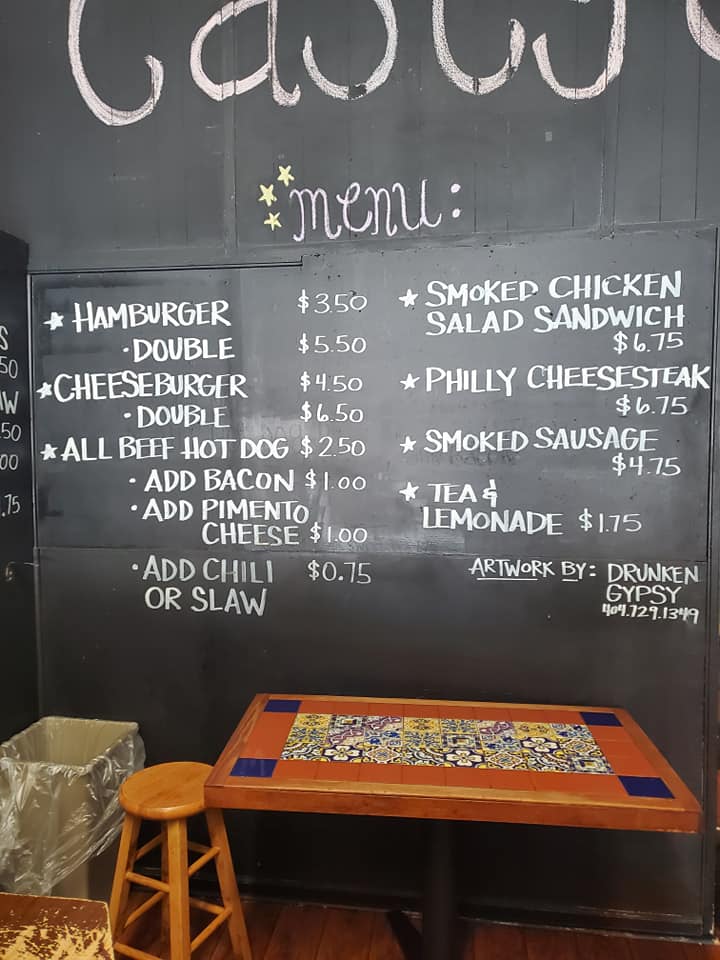 menu:
★ HAMBURGER $3.50
· DOUBLE $5.50
★ CHEESEBURGER $4.50
· DOUBLE $6.50
★ ALL BEEF HOT DOG $2.50
· ADD BACON $1.00
· ADD PIMENTO
CHEESE $1.00
· ADD CHILI $0.75
OR SLAW
★ SMOKED CHICKEN
SALAD SANDWICH
$6.75
★ PHILLY CHEESESTEAK
$6.75
★ SMOKED SAUSAGE
$4.75
★ TEA &
LEMONADE $1.75
ARTWORK BY: DRUNKEN
GYPSY
404.729.1349